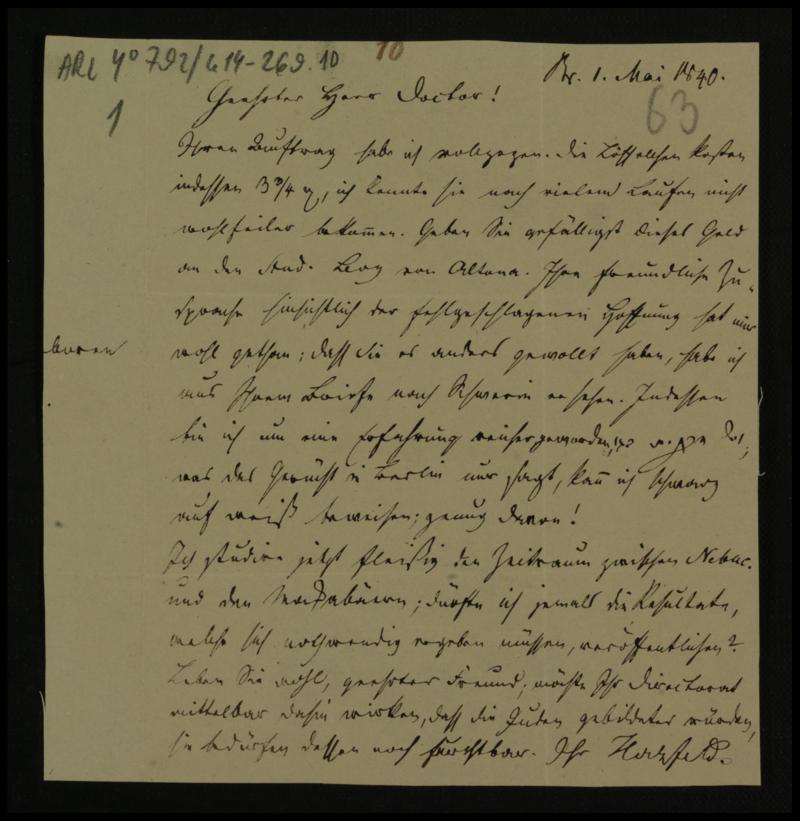 ARC 4° 792/G 14-269.10
10
Br. 1. Mai 1840.
1
63
Geehrter Herr Doctor!
Ihren Auftrag habe ich vollzogen. Die Löffelchen kosten
indessen 3 3/4 ich konnte sie nach vielem Laufen nicht
wohlfeiler bekommen. Geben Sie gefälligst dieses Geld
an den Stud. von Altona. Ihre freundliche Zu-
sprache hinsichtlich der fehlgeschlagenen Hoffnung hat mir
wohl gethan; daß Sie es anders gewollt haben, habe ich
aus Ihrem Briefe nach Schwerin ersehen. Indessen
bin ich um eine Erfahrung reicher geworden,
was das Gerücht in Berlin nur sagt, kann ich schwarz
auf weiß beweisen; genug davon!
Ich studire jetzt fleißig den Zeitraum zwischen Nebuc.
und den Makkabäern; dürfte ich jemals die Resultate,
welche sich nothwendig ergeben müssen, veröffentlichen?
Leben Sie wohl, geehrter Freund; möchte Ihr Directorat
mittelbar dahin wirken, daß die Juden gebildeter würden,
sie bedürfen dessen noch furchtbar. Ihr